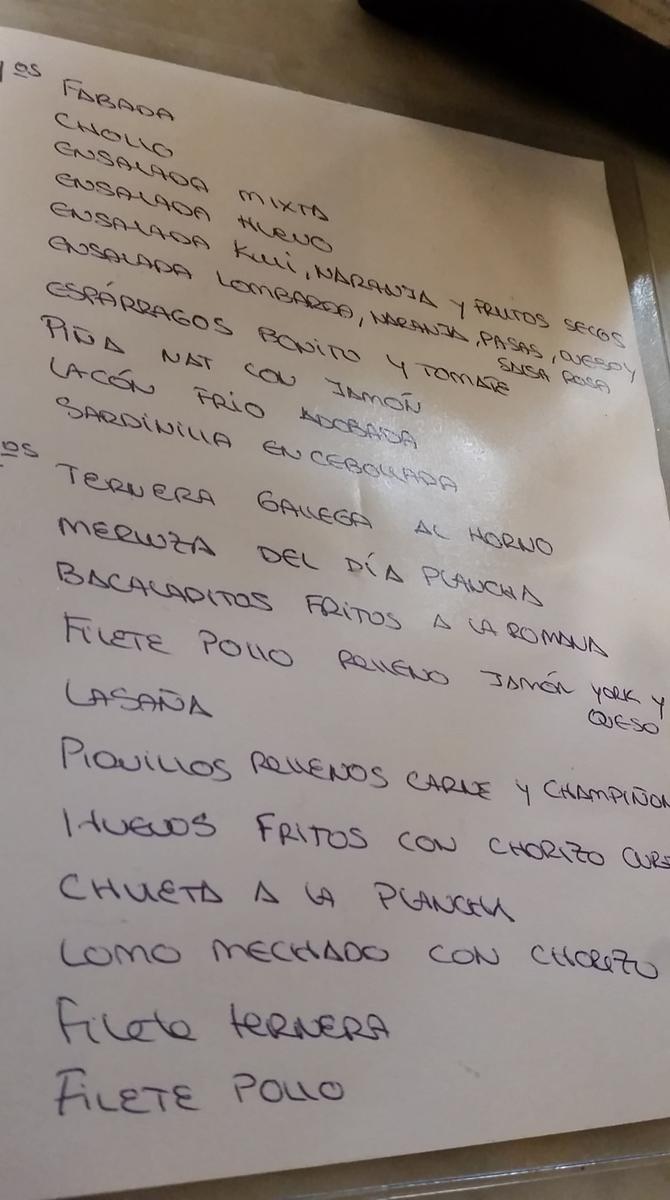 1os FABADA
CHOLLO
ENSALADA MIXTA
ENSALADA HUEVO
ENSALADA KIWI, NARANJA Y FRUTOS SECOS
ENSALADA LOMBARDA, NARANJA, PASAS, QUESO Y
SALSA ROSA
ESPÁRRAGOS BONITO Y TOMATE
PIÑA NAT CON JAMÓN
LACÓN FRIO ADOBADA
SARDINILLA ENCEBOLLADA
os TERNERA GALLEGA AL HORNO
MERLUZA DEL DÍA PLANCHA
BACALADITOS FRITOS A LA ROMANA
FILETE POLLO RELLENO JAMÓN YORK Y
QUESO
LASAÑA
PIQUILLOS RELLENOS CARNE Y CHAMPIÑON
HUEVOS FRITOS CON CHORIZO CURE
CHULETA A LA PLANCHA
LOMO MECHADO CON CHORIZO
FILETE TERNERA
FILETE POLLO